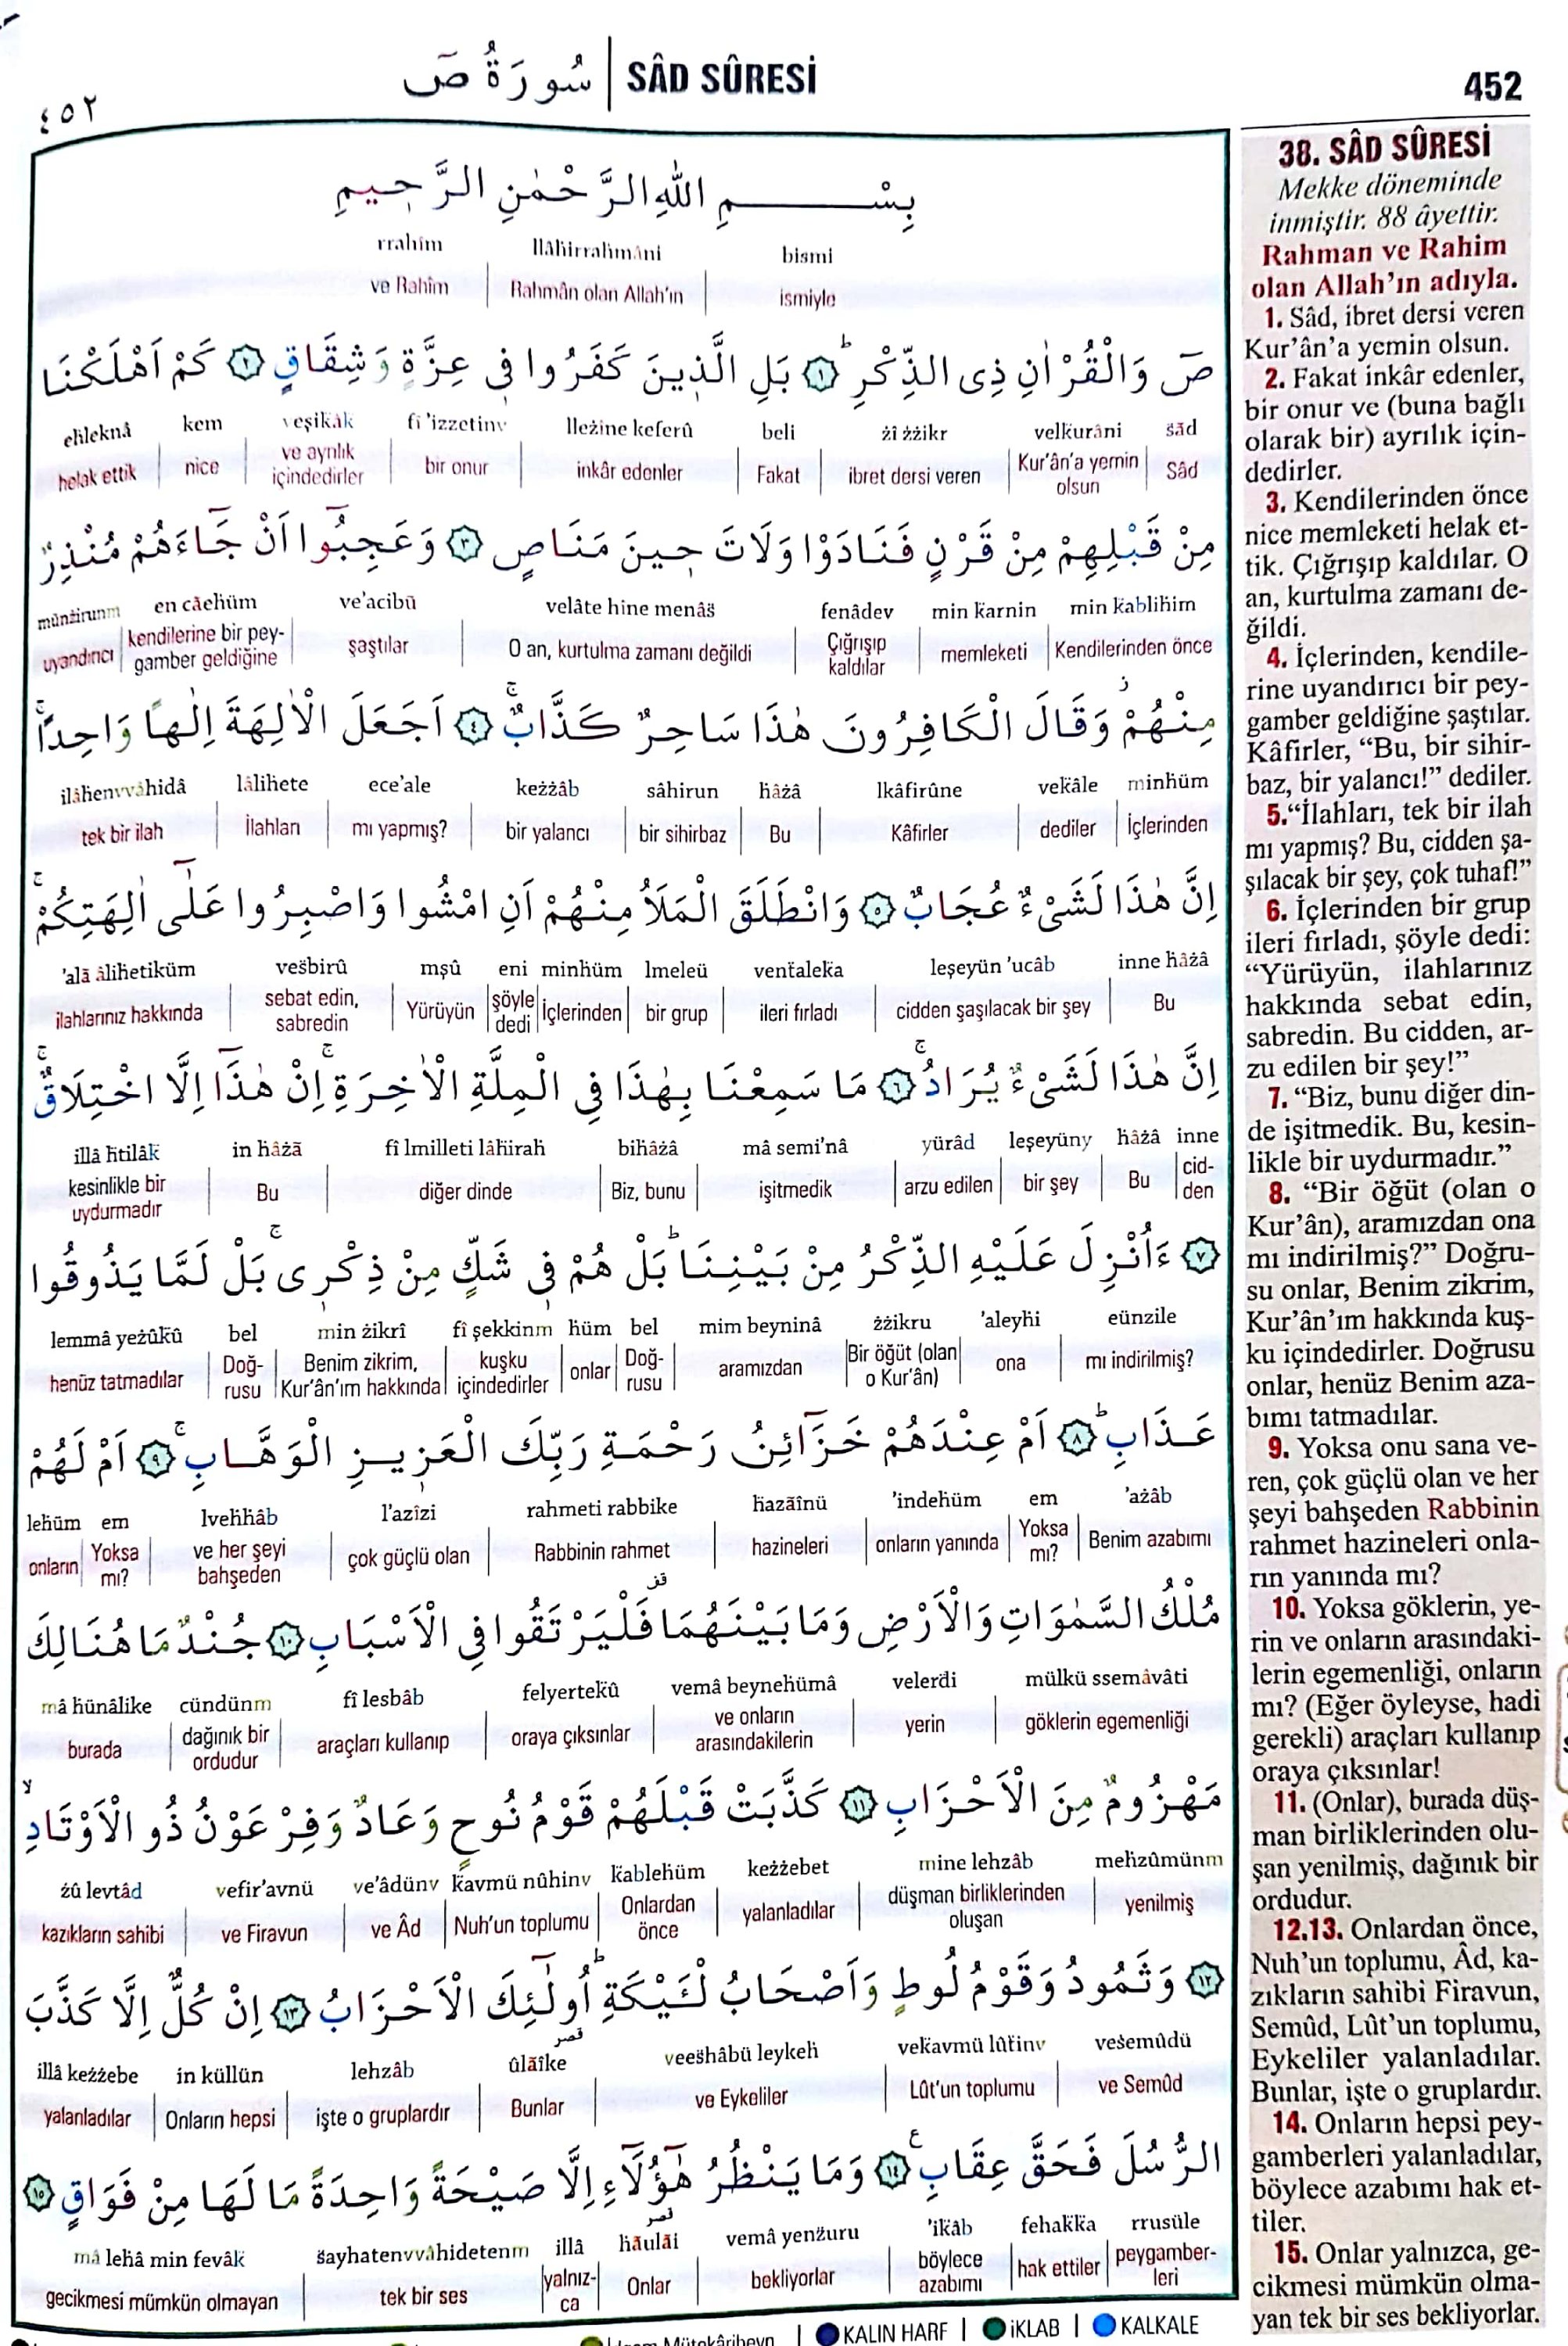 ٤٥٢
سُورَةُ صٓ | SÂD SÛRESİ
452
بِسْمِ اللّٰهِ الرَّحْمٰنِ الرَّحٖيمِ
bismi llâhirrahmâni rrahîm
ismiyle Rahmân olan Allah'ın ve Rahîm
صٓ وَالْقُرْاٰنِ ذِى الذِّكْرِؕ ﴿١﴾ بَلِ الَّذٖينَ كَفَرُوا فٖى عِزَّةٍ وَشِقَاقٍ ﴿٢﴾ كَمْ اَهْلَكْنَا
sâd velkurâni żî żżikr beli lleżîne keferû fî 'izzetinv veşikâk kem ehleknâ
Sâd Kur'ân'a yemin olsun ibret dersi veren Fakat inkâr edenler bir onur ve ayrılık içindedirler nice helak ettik
مِنْ قَبْلِهِمْ مِنْ قَرْنٍ فَنَادَوْا وَلَاتَ حٖينَ مَنَاصٍ ﴿٣﴾ وَعَجِبُٓوا اَنْ جَٓاءَهُمْ مُنْذِرٌ
min kablihim min karnin fenâdev velâte hîne menâs ve'acibû en câehüm münżirunm
Kendilerinden önce memleketi Çığrışıp kaldılar O an, kurtulma zamanı değildi şaştılar kendilerine bir peygamber geldiğine uyandırıcı
مِنْهُمْؗ وَقَالَ الْكَافِرُونَ هٰذَا سَاحِرٌ كَذَّابٌۚ ﴿٤﴾ اَجَعَلَ الْاٰلِهَةَ اِلٰهاً وَاحِداًۚ
minhüm vekâle lkâfirûne hâżâ sâhirun keżżâb ece'ale lâlihete ilâhenvvâhidâ
İçlerinden dediler Kâfirler Bu bir sihirbaz bir yalancı mı yapmış? İlahları tek bir ilah
اِنَّ هٰذَا لَشَىْءٌ عُجَابٌ ﴿٥﴾ وَانْطَلَقَ الْمَلَاُ مِنْهُمْ اَنِ امْشُوا وَاصْبِرُوا عَلٰٓى اٰلِهَتِكُمْۚ
inne hâżâ leşeyün 'ucâb ventaleka lmeleü minhüm eni mşû vesbirû 'alâ âlihetiküm
Bu cidden şaşılacak bir şey ileri fırladı bir grup İçlerinden şöyle dedi Yürüyün sebat edin, sabredin ilahlarınız hakkında
اِنَّ هٰذَا لَشَىْءٌ يُرَادُۚ ﴿٦﴾ مَا سَمِعْنَا بِهٰذَا فِى الْمِلَّةِ الْاٰخِرَةِۚ اِنْ هٰذَٓا اِلَّا اخْتِلَاقٌۚ
inne hâżâ leşeyüny yürâd mâ semi'nâ bihâżâ fî lmilleti lâhirah in hâżâ illâ htilâk
cidden Bu bir şey arzu edilen işitmedik Biz, bunu diğer dinde Bu kesinlikle bir uydurmadır
﴿٧﴾ ءَاُنْزِلَ عَلَيْهِ الذِّكْرُ مِنْ بَيْنِنَاؕ بَلْ هُمْ فٖى شَكٍّ مِنْ ذِكْرٖىۚ بَلْ لَمَّا يَذُوقُوا
eünzile 'aleyhi żżikru mim beyninâ bel hüm fî şekkinm min żikrî bel lemmâ yeżûkû
mı indirilmiş? ona Bir öğüt (olan o Kur'ân) aramızdan Doğrusu onlar kuşku içindedirler Benim zikrim, Kur'ân'ım hakkında Doğrusu henüz tatmadılar
عَذَابِؕ ﴿٨﴾ اَمْ عِنْدَهُمْ خَزَٓائِنُ رَحْمَةِ رَبِّكَ الْعَزٖيزِ الْوَهَّابِۚ ﴿٩﴾ اَمْ لَهُمْ
'ażâb em 'indehüm hazâinü rahmeti rabbike l'azîzi lvehhâb em lehüm
Benim azabımı Yoksa mı? onların yanında hazineleri Rabbinin rahmet çok güçlü olan ve her şeyi bahşeden Yoksa mı? onların
مُلْكُ السَّمٰوَاتِ وَالْاَرْضِ وَمَا بَيْنَهُمَا فَلْيَرْتَقُوا فِى الْاَسْبَابِ ﴿١٠﴾ جُنْدٌ مَا هُنَالِكَ
mülkü ssemâvâti velerdi vemâ beynehümâ felyertekû fî lesbâb cündünm mâ hünâlike
göklerin egemenliği yerin ve onların arasındakilerin oraya çıksınlar araçları kullanıp dağınık bir ordudur burada
مَهْزُومٌ مِنَ الْاَحْزَابِ ﴿١١﴾ كَذَّبَتْ قَبْلَهُمْ قَوْمُ نُوحٍ وَعَادٌ وَفِرْعَوْنُ ذُو الْاَوْتَادِۙ
mehzûmünm mine lehzâb keżżebet kablehüm kavmü nûhinv ve'âdünv vefir'avnü żû levtâd
yenilmiş düşman birliklerinden oluşan yalanladılar Onlardan önce Nuh'un toplumu ve Âd ve Firavun kazıkların sahibi
﴿١٢﴾ وَثَمُودُ وَقَوْمُ لُوطٍ وَاَصْحَابُ لْـَٔيْكَةِؕ اُولٰٓئِكَ الْاَحْزَابُ ﴿١٣﴾ اِنْ كُلٌّ اِلَّا كَذَّبَ
veśemûdü vekavmü lûtinv veeshâbü leykeh ûlâike lehzâb in küllün illâ keżżebe
ve Semûd Lût'un toplumu ve Eykeliler Bunlar işte o gruplardır Onların hepsi yalanladılar
الرُّسُلَ فَحَقَّ عِقَابِ ﴿١٤﴾ وَمَا يَنْظُرُ هٰٓؤُلَٓاءِ اِلَّا صَيْحَةً وَاحِدَةً مَا لَهَا مِنْ فَوَاقٍ ﴿١٥﴾
rrusüle fehakka 'ikâb vemâ yenzuru hâulâi illâ sayhatenvvâhidetenm mâ lehâ min fevâk
peygamberleri hak ettiler böylece azabımı bekliyorlar Onlar yalnızca tek bir ses gecikmesi mümkün olmayan
KALIN HARF | İKLAB | KALKALE
38. SÂD SÛRESİ
Mekke döneminde
inmiştir. 88 âyettir.
Rahman ve Rahim
olan Allah'ın adıyla.
1. Sâd, ibret dersi veren
Kur'ân'a yemin olsun.
2. Fakat inkâr edenler,
bir onur ve (buna bağlı
olarak bir) ayrılık için-
dedirler.
3. Kendilerinden önce
nice memleketi helak et-
tik. Çığrışıp kaldılar. O
an, kurtulma zamanı de-
ğildi.
4. İçlerinden, kendile-
rine uyandırıcı bir pey-
gamber geldiğine şaştılar.
Kâfirler, "Bu, bir sihir-
baz, bir yalancı!" dediler.
5. "İlahları, tek bir ilah
mı yapmış? Bu, cidden şa-
şılacak bir şey, çok tuhaf!"
6. İçlerinden bir grup
ileri fırladı, şöyle dedi:
"Yürüyün, ilahlarınız
hakkında sebat edin,
sabredin. Bu cidden, ar-
zu edilen bir şey!"
7. "Biz, bunu diğer din-
de işitmedik. Bu, kesin-
likle bir uydurmadır."
8. "Bir öğüt (olan o
Kur'ân), aramızdan ona
mı indirilmiş?" Doğru-
su onlar, Benim zikrim,
Kur'ân'ım hakkında kuş-
ku içindedirler. Doğrusu
onlar, henüz Benim aza-
bımı tatmadılar.
9. Yoksa onu sana ve-
ren, çok güçlü olan ve her
şeyi bahşeden Rabbinin
rahmet hazineleri onla-
rın yanında mı?
10. Yoksa göklerin, ye-
rin ve onların arasındaki-
lerin egemenliği, onların
mı? (Eğer öyleyse, hadi
gerekli) araçları kullanıp
oraya çıksınlar!
11. (Onlar), burada düş-
man birliklerinden olu-
şan yenilmiş, dağınık bir
ordudur.
12.13. Onlardan önce,
Nuh'un toplumu, Âd, ka-
zıkların sahibi Firavun,
Semûd, Lût'un toplumu,
Eykeliler yalanladılar.
Bunlar, işte o gruplardır.
14. Onların hepsi pey-
gamberleri yalanladılar,
böylece azabımı hak et-
tiler.
15. Onlar yalnızca, ge-
cikmesi mümkün olma-
yan tek bir ses bekliyorlar.